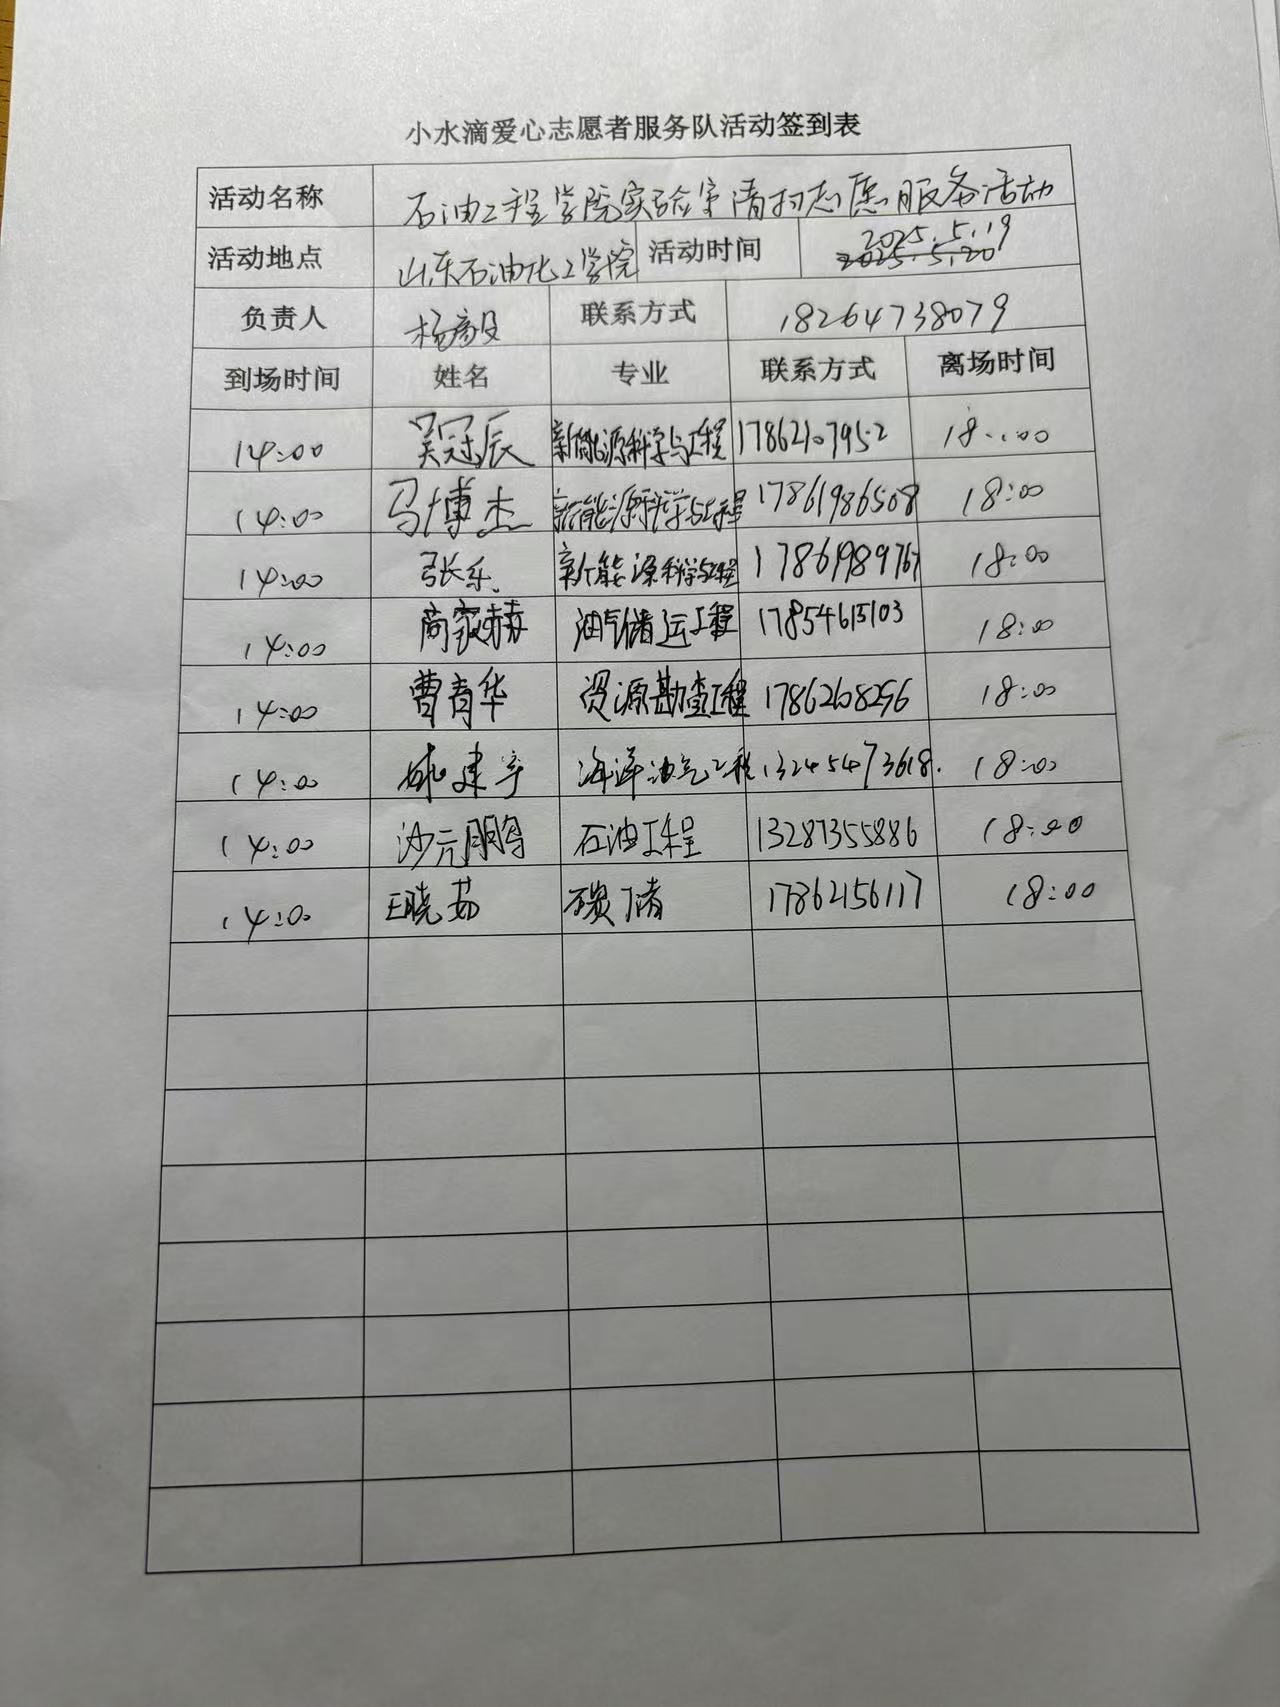 小水滴爱心志愿者服务队活动签到表
活动名称 石油工程学院实验室清扫志愿服务活动
活动地点 山东石油化工学院 活动时间 2025.5.19
2025.5.20
负责人 杨毅 联系方式 18264738079
到场时间 姓名 专业 联系方式 离场时间
14:00 吴冠辰 新能源科学与工程 17862107952 18:00
14:00 马博杰 新能源科学与工程 17861986508 18:00
14:00 张乐 新能源科学与工程 17861989767 18:00
14:00 商家赫 油气储运工程 17854615103 18:00
14:00 曹青华 资源勘查工程 1786208296 18:00
14:00 建宇 海洋油气工程 13245473618 18:00
14:00 沙元鹏 石油工程 13287355886 18:00
14:00 王晓茹 17862156117 18:00